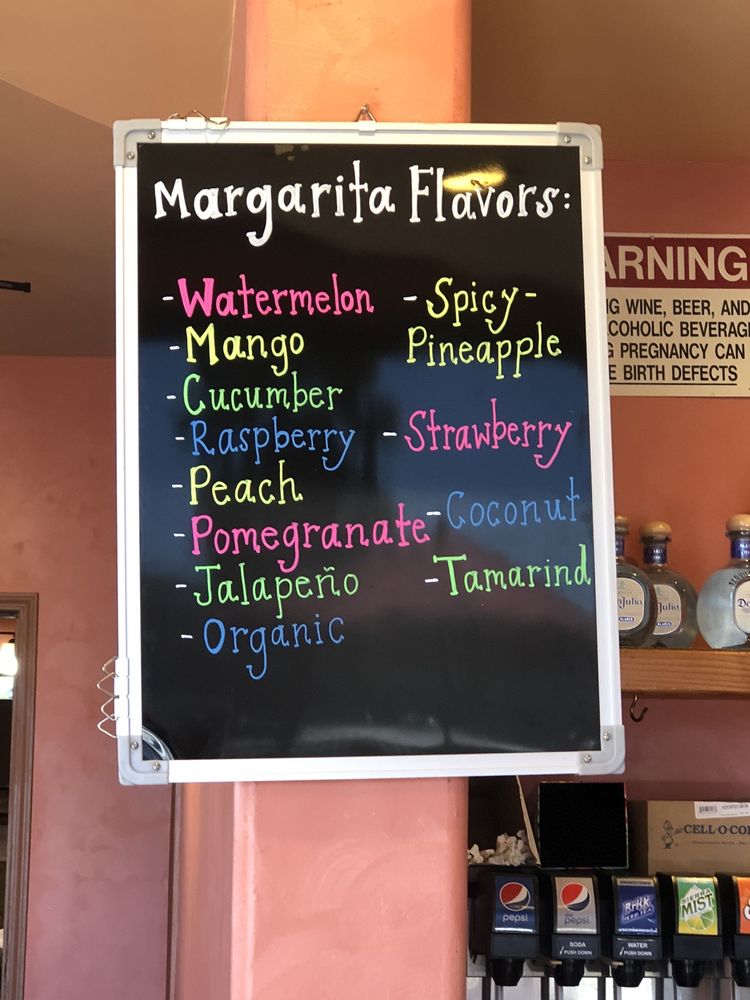 Margarita Flavors:
-Watermelon
-Mango
-Cucumber
-Raspberry
-Peach
-Pomegranate
-Jalapeño
-Organic
-Spicy-
Pineapple
-Strawberry
-Coconut
-Tamarind
ARNING
G WINE, BEER, AND
COHOLIC BEVERAG
G PREGNANCY CAN
E BIRTH DEFECTS
Julio
Julio
BLANCO
CELL-O-CO
pepsi
diet pepsi
SODA
PUSH DOWN
UNSWEETENED
Brisk
ICED TEA
WATER
PUSH DOWN
SIERRA
MIST